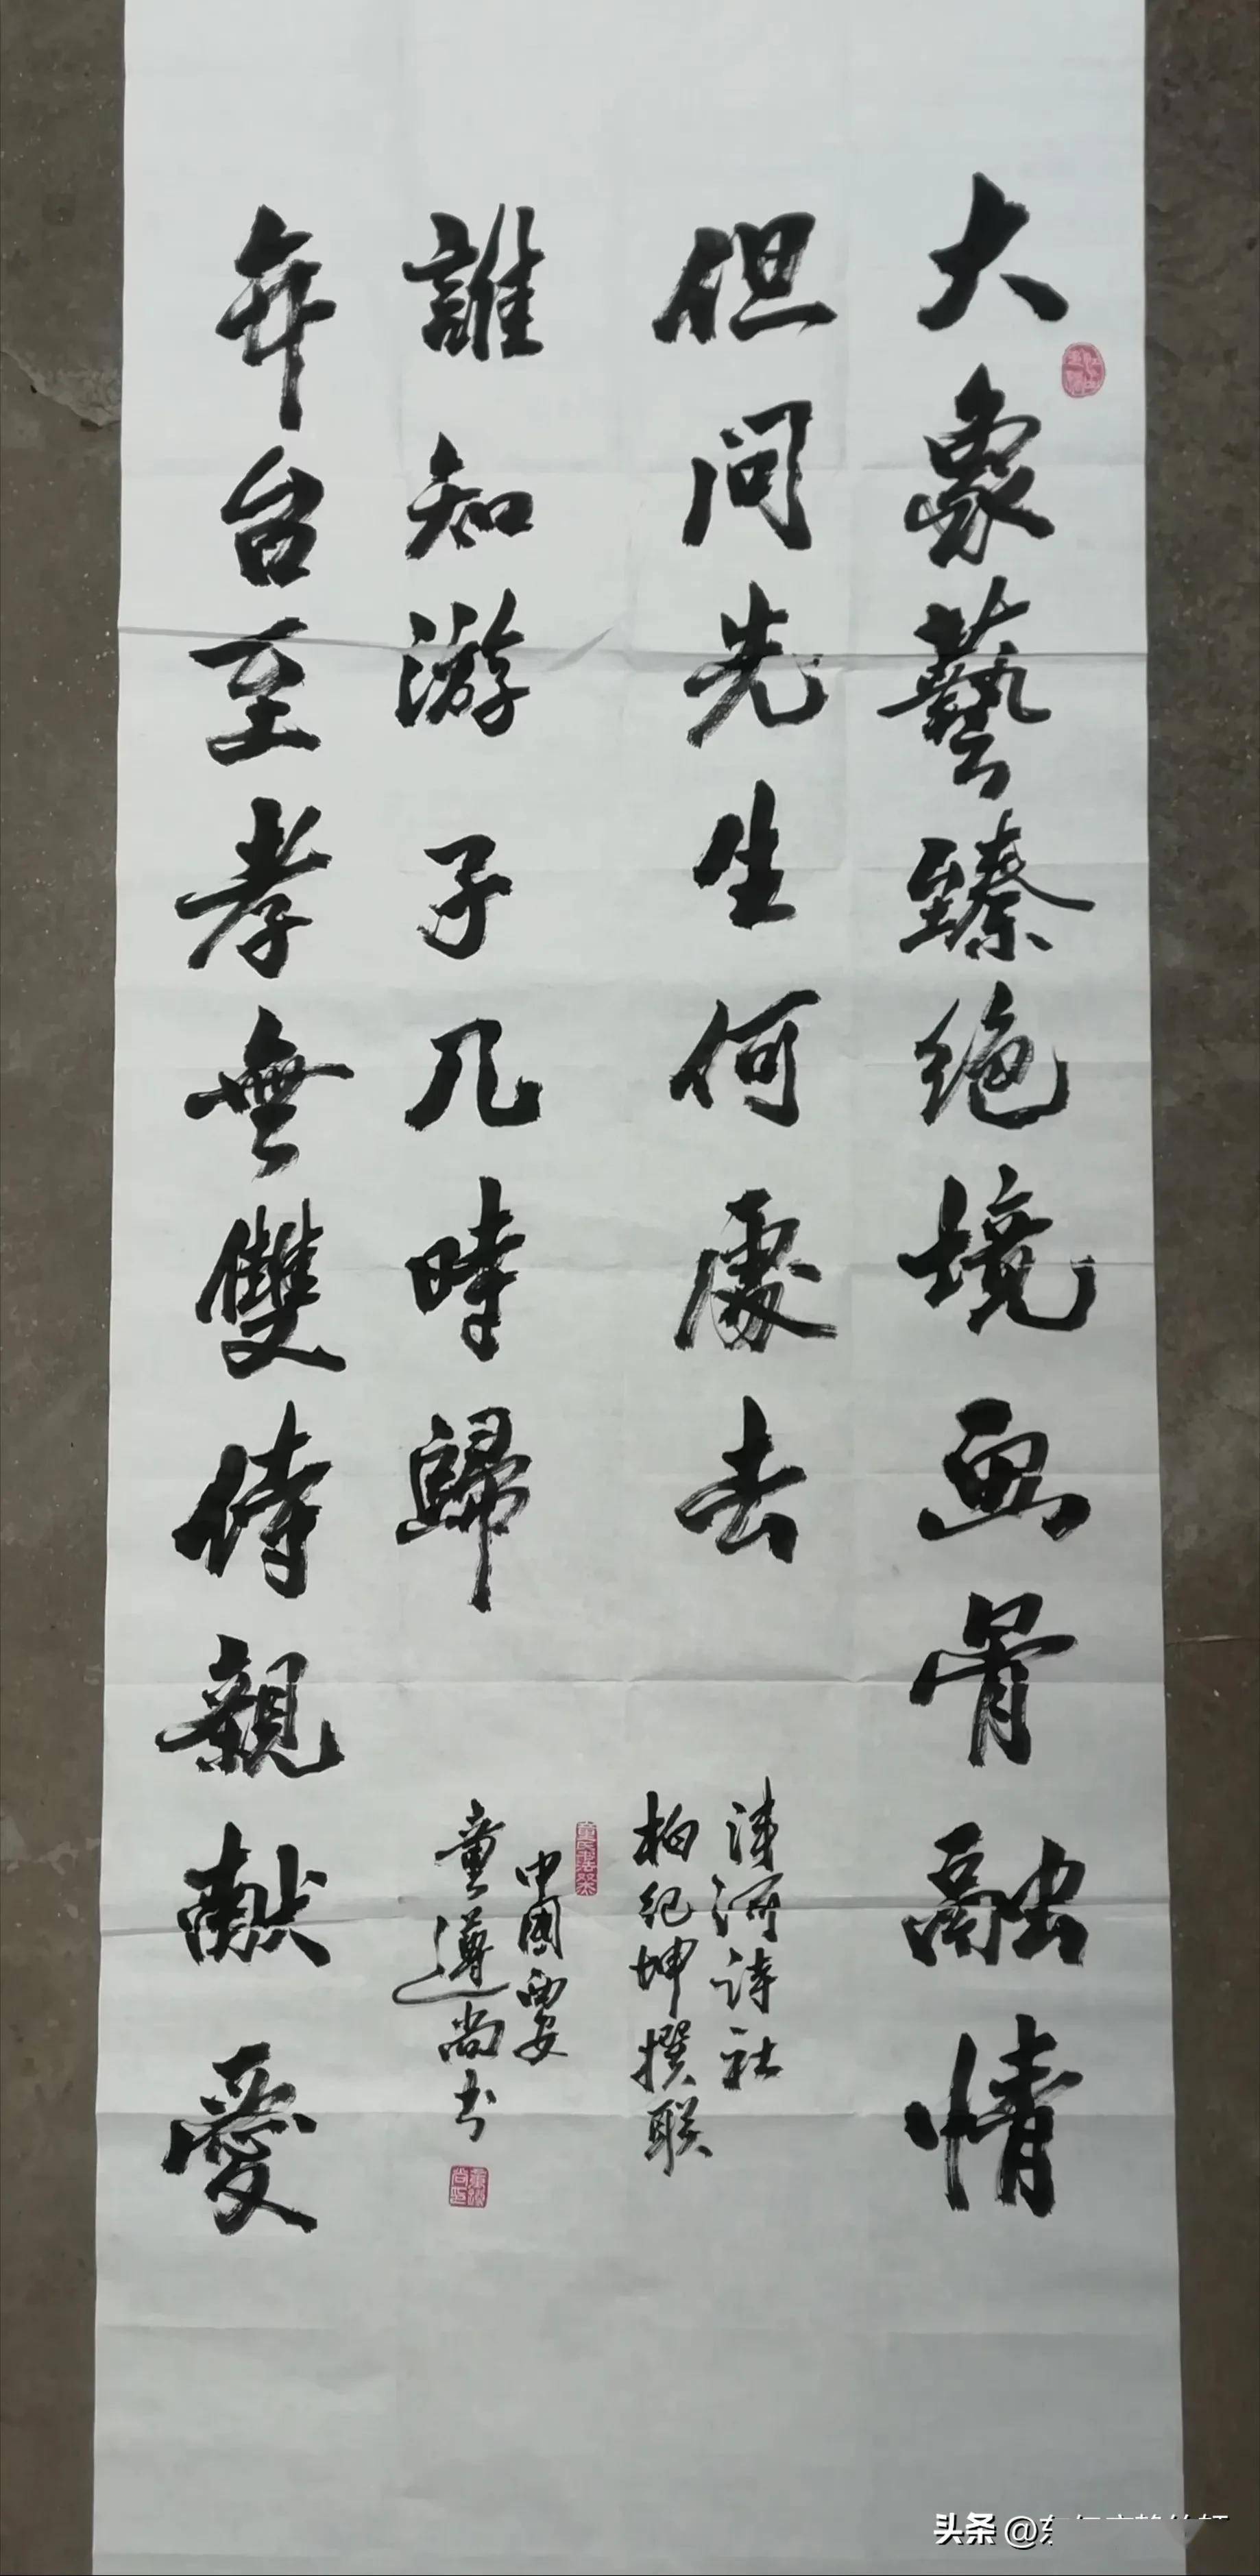 大象藝臻绝境画骨融情
但问先生何處去
台至孝無雙侍親献愛
誰知游子几時歸
涑河诗社
柏纪坤撰联
中國西安
童遵尚书
头条